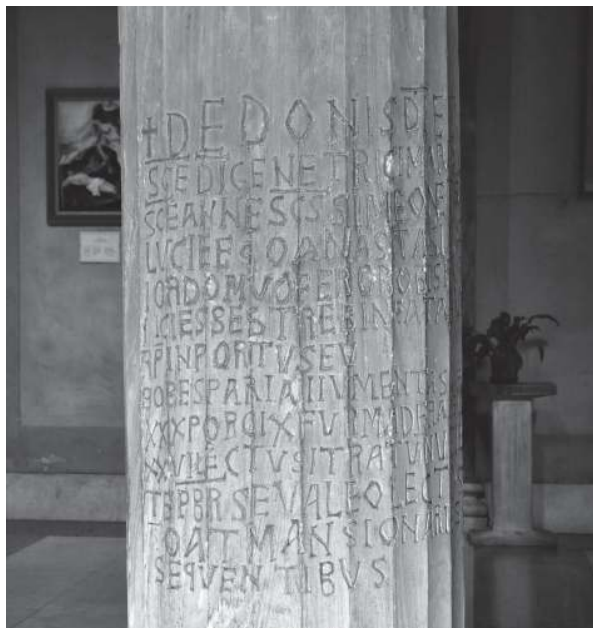 +DEDONISDIE
SCEDIGENETRICIMAR
SCEANNESSCSSIMEONE
LVCIEEGOANASTA
IORDOMVOFERO
ICIESBESTREBINEATA
RPINPORTVSEV
BOBESPARIAIIIVMENTAS
XXXPORCIXFVRMADERA
XXVILECTVSITRATV
TBPBRSEVALEOLECT
OATMANSIONARIS
SEQVENTIBVS